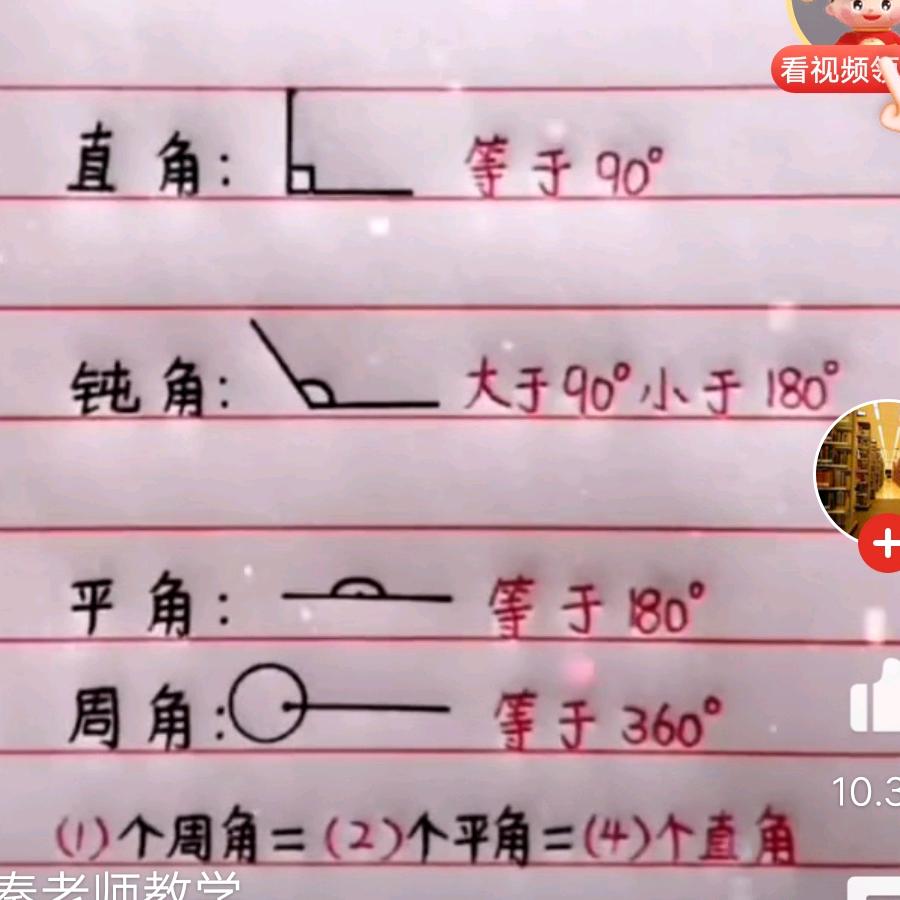 看视频领
直角: 等于90°
钝角: 大于90°小于180°
平角: 等于180°
周角: 等于360°
10.3
(1)个周角=(2)个平角=(4)个直角
秦老师教学